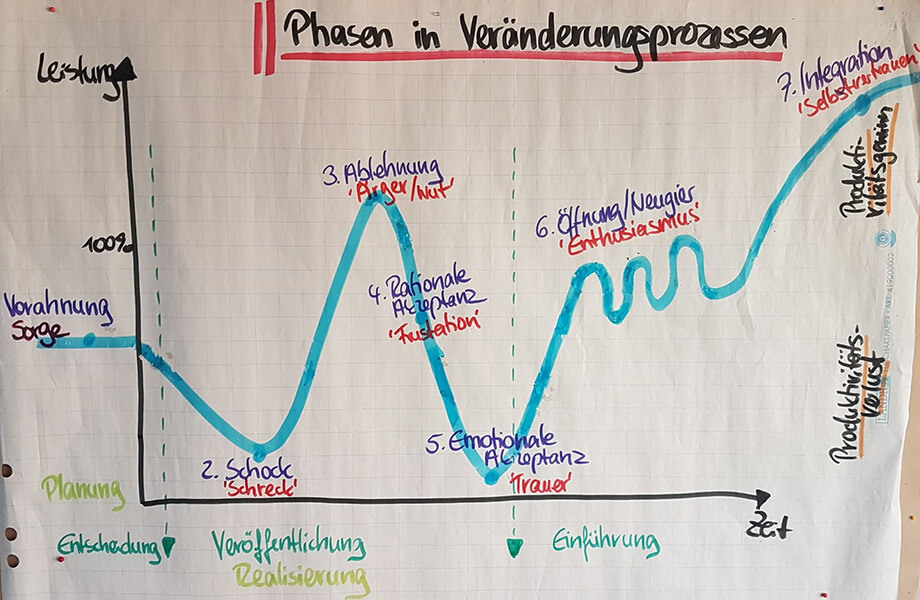 Phasen in Veränderungsprozessen
Leistung
7. Integration
'Selbstvertrauen'
3. Ablehnung
'Ärger/Wut'
Produkti-
vitätsgewinn
6. Öffnung/Neugier
'Enthusiasmus'
100%
4. Rationale
Akzeptanz
'Frustation'
Vorahnung
Sorge
Produktivitäts-
verlust
5. Emotionale
Akzeptanz
'Trauer'
2. Schock
'Schreck'
Planung
Zeit
Entscheidung
Veröffentlichung
Einführung
Realisierung